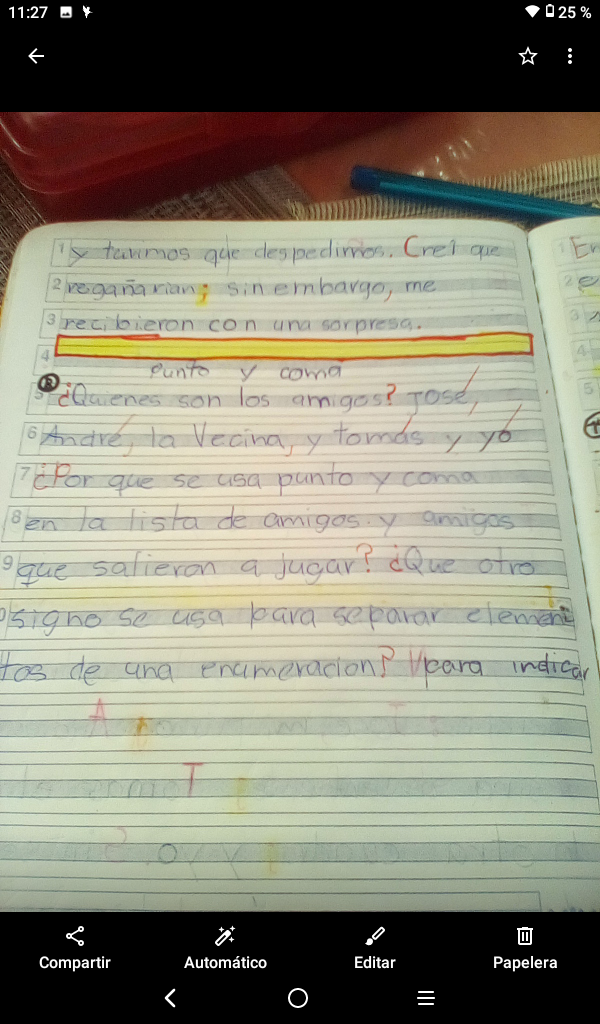 11:27
25 %
1 y tuvimos que despedirnos. Creí que
2 regañarian; sin embargo, me
3 recibieron con una sorpresa.
4
Punto y coma
5 ¿Quienes son los amigos? José,
6 André, la Vecina, y tomás y yó
7 ¿Por que se usa punto y coma
8 en la lista de amigos y amigos
9 que salieron a jugar? ¿Que otro
signo se usa para separar elemen
tos de una enumeracion? para indicar
A
T
S
1 En
2 e
3
4
5
Compartir
Automático
Editar
Papelera